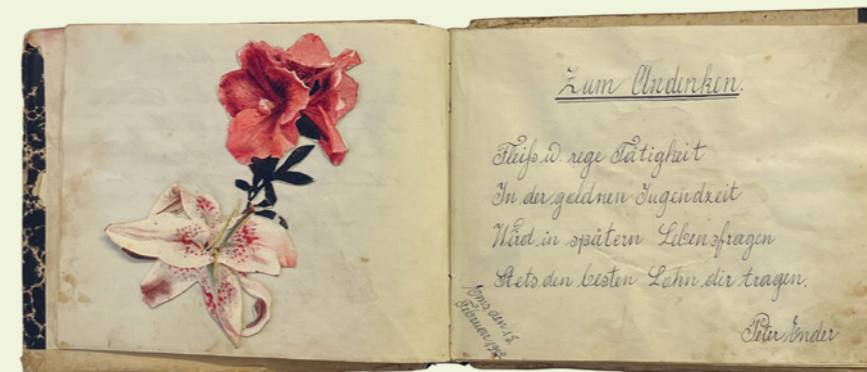 Zum Andenken.
Fleiß u. rege Tätigkeit
In der goldnen Jugendzeit
Wird in spätern Lebensfragen
Stets den besten Lohn dir tragen.
Peter Ender
den 15.
Februar